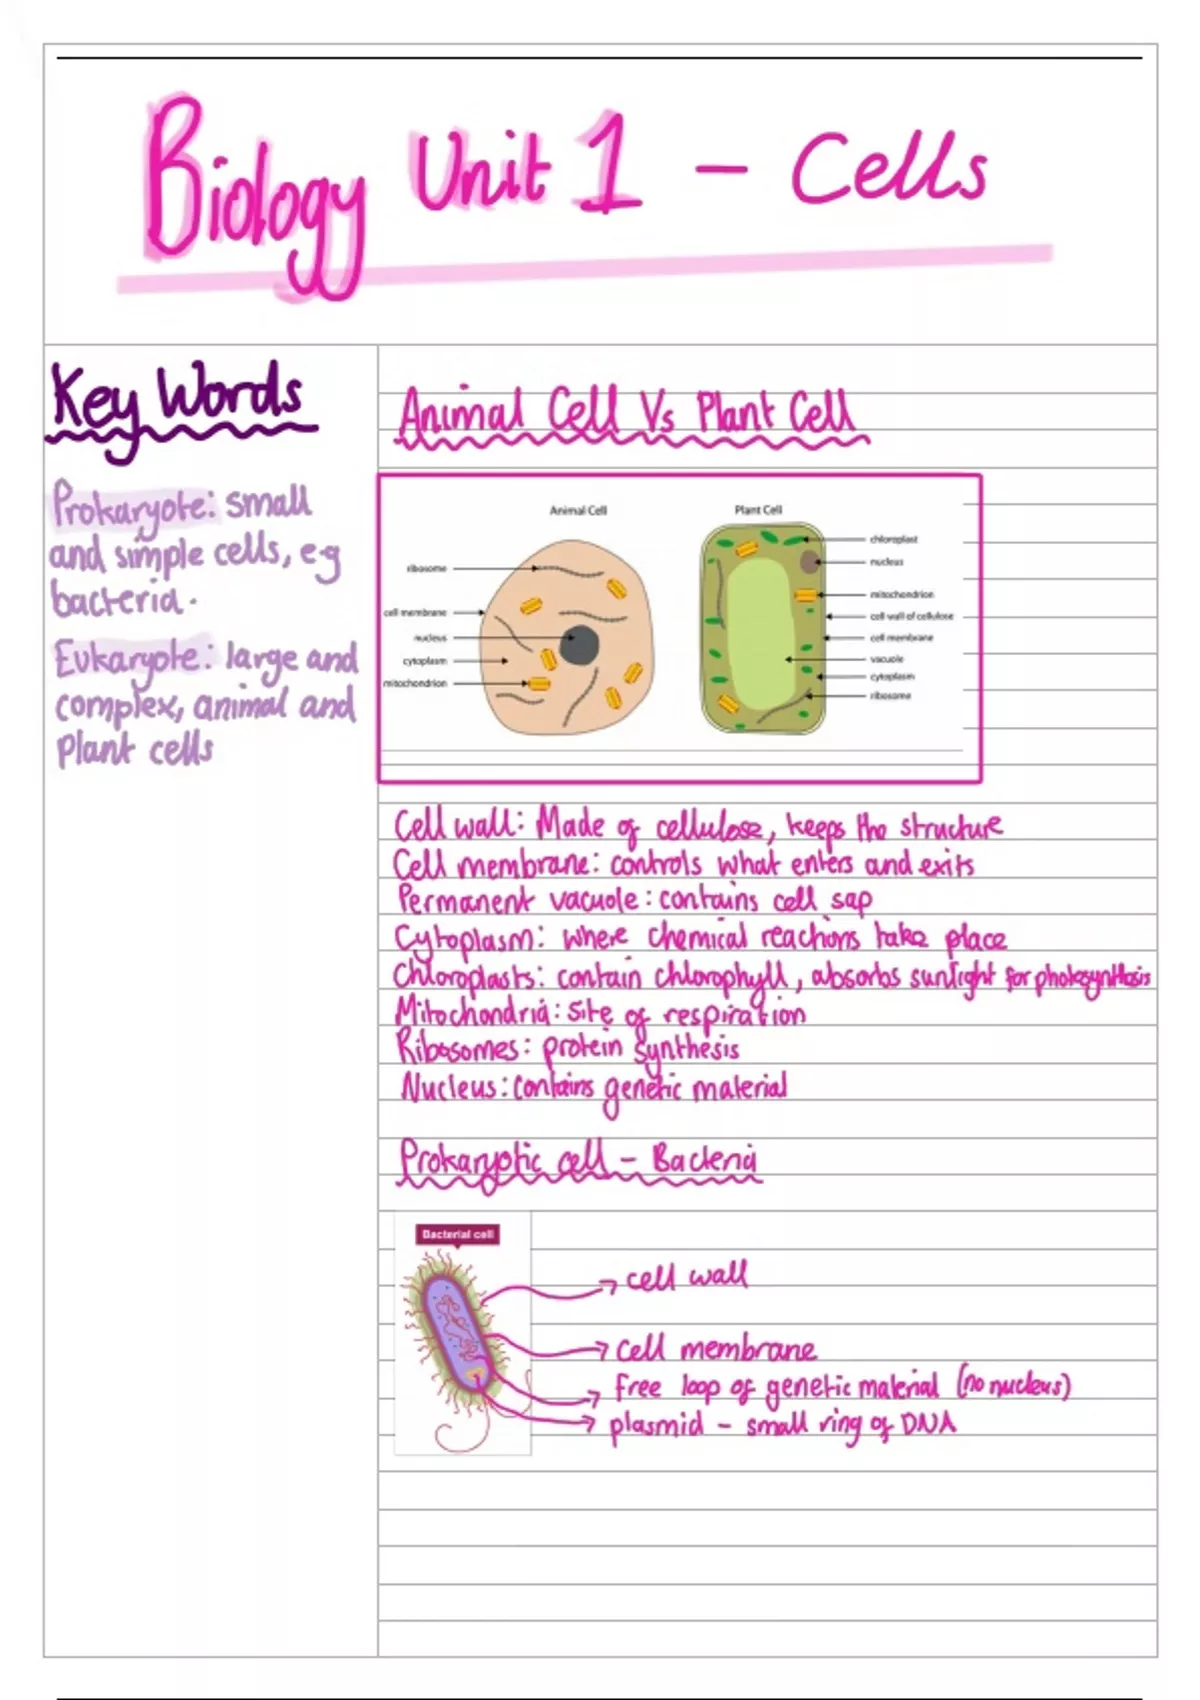 Biology Unit 1 - Cells
Key Words
Prokaryote: small
and simple cells, eg
bacteria.
Eukaryote: large and
complex, animal and
plant cells
Animal Cell Vs Plant Cell
Animal Cell
ribosome
cell membrane
nucleus
cytoplasm
mitochondrion
Plant Cell
chloroplast
nucleus
mitochondrion
cell wall of cellulose
cell membrane
vacuole
cytoplasm
ribosome
Cell wall: Made of cellulose, keeps the structure
Cell membrane: controls what enters and exits
Permanent vacuole: contains cell sap
Cytoplasm: where chemical reactions take place
Chloroplasts: contain chlorophyll, absorbs sunlight for photosynthesis
Mitochondria: site of respiration
Ribosomes: protein synthesis
Nucleus: contains genetic material
Prokaryotic cell - Bacteria
Bacterial cell
cell wall
cell membrane
free loop of genetic material (no nucleus)
plasmid - small ring of DNA